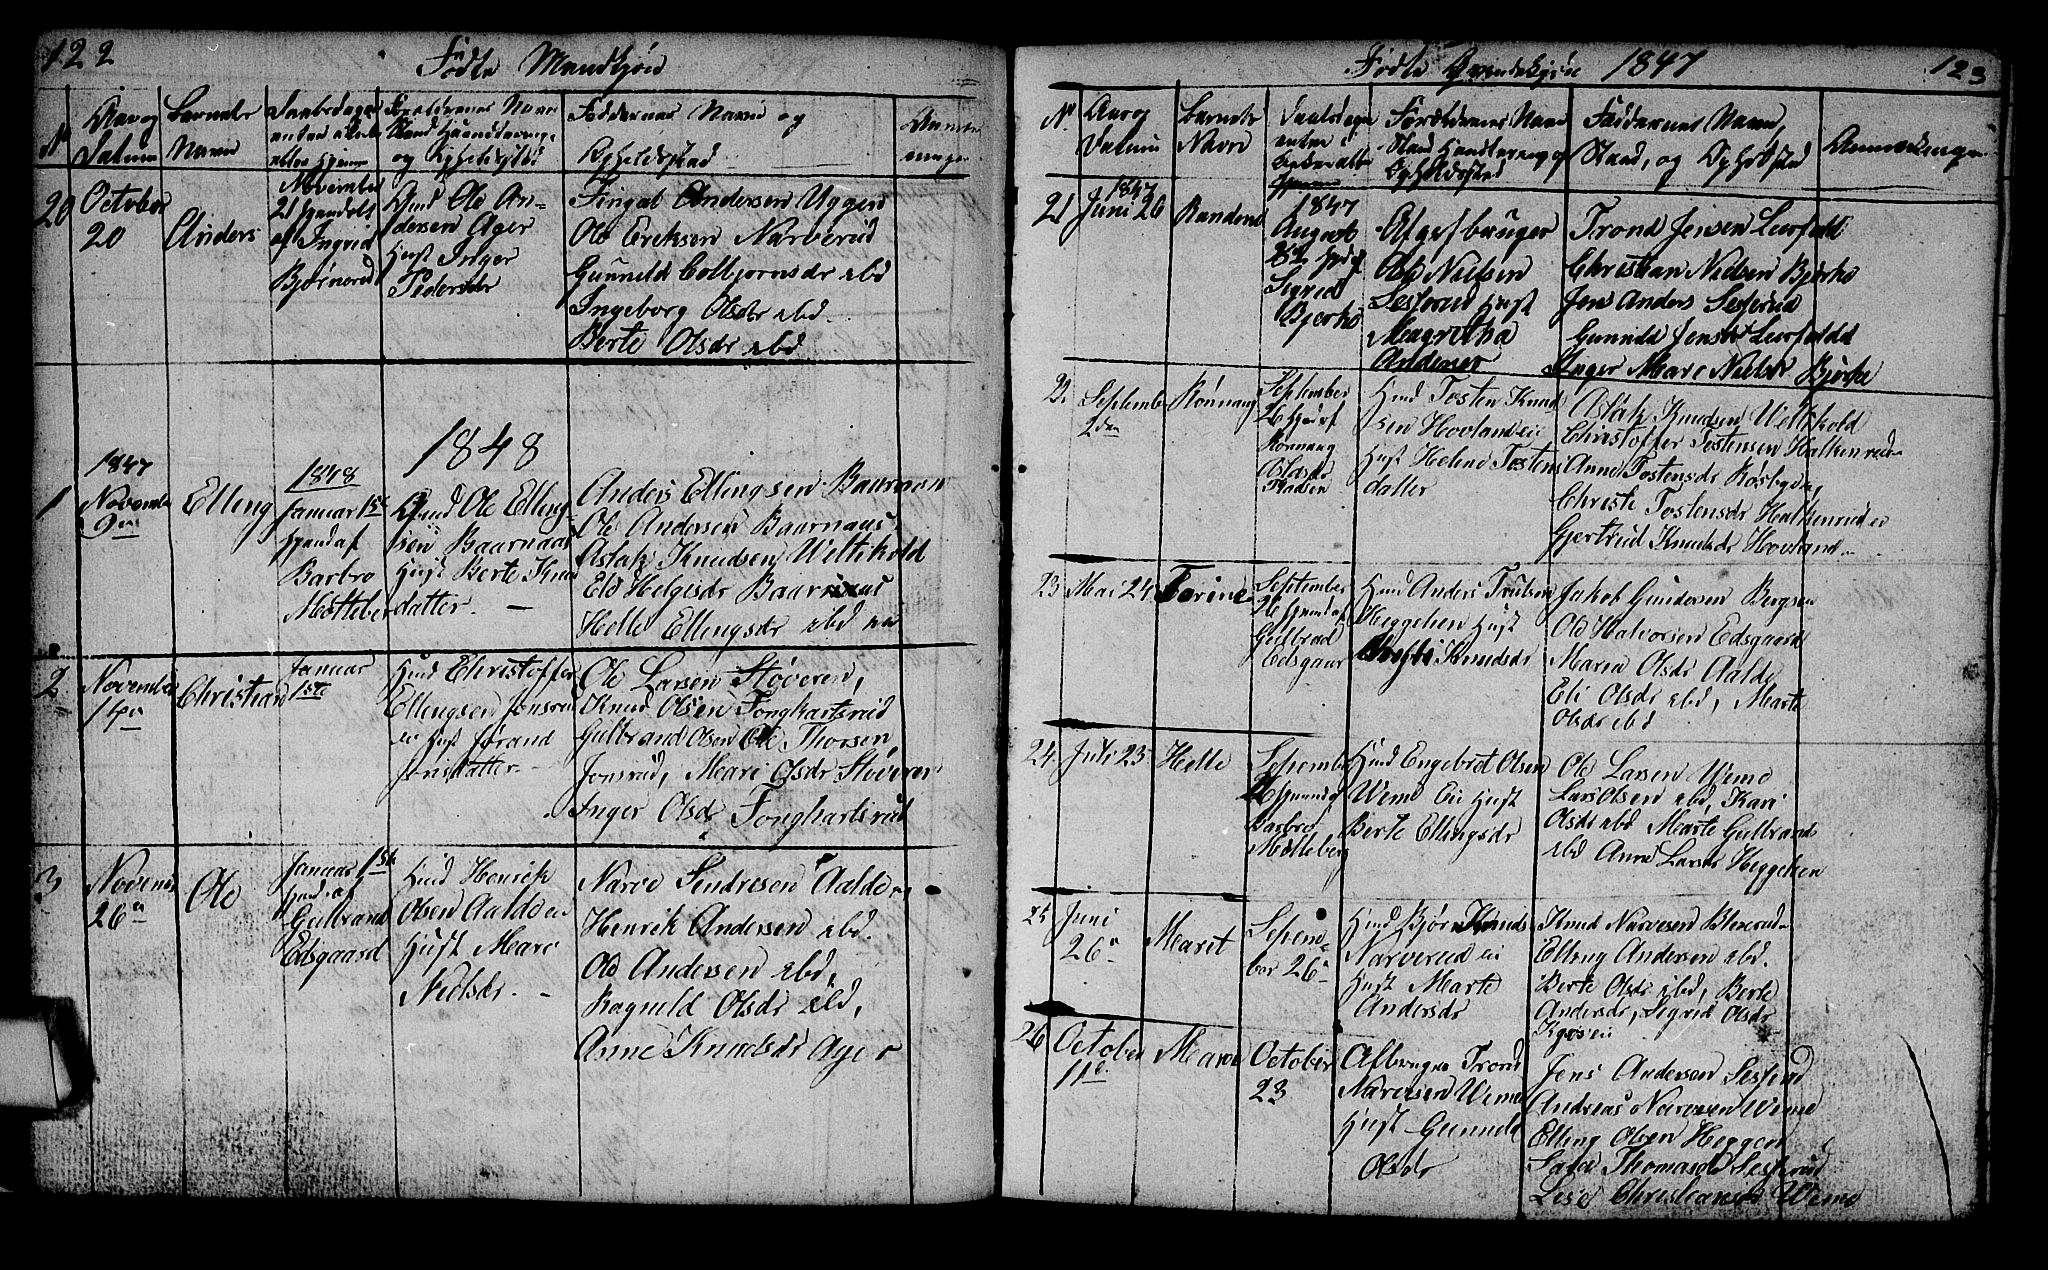 122
Fødte Mandkjøn
N
Aar og
Datum
Barnets
Navn
Daabsdagen
Forældrenes Navn
Stand Haandtering
og Opholdsstæd
Faddernes Navn og
Opholdsstæd
20
October
20
Anders
November
21 hjemdøbt
af Ingrid
Bjørnerud
Hmd Ole An-
dersen Ager
Hust Inger
Pedersdr
Fingal Andersen Uggen
Ole Eriksen Narverud
Gunnild Colbjørnsdr ebd
Ingeborg Olsdr ebd
Berte Olsdr ebd
1848
1
1847
November
9de
Elling
1848
Januar 1ste
hjemd af
Barbro
Møtteberg
Hmd Ole Elling
sen Baarnaas
Hust Berte Knud
datter. —
Anders Ellingsen Baarnaas
Ole Andersen Baarnaas,
Aslak Knudsen Weltikold
Eld Helgisdr Baarnaas
Helle Ellingsdr ebd
2
November
14de
Christian
Januar
1ste
Hmd Christoffer
Ellingsen Jonsrud
ei Hust Jørand
Jonsdatter —
Ole Larsen Støveren,
Knud Olsen Fonghartsrud
Gulbrand Olsen Ole Thorsen,
Jonsrud, Mari Olsdr Støveren
Inger Olsdr Fonghartsrud
3
Novem
26de
Ole
Januar 1ste
hmd af
Gulbrand
Edsgaard
Hmd Henrik
Olsen Aalde ei
Hust Mari
Nielsdr. —
Narve Sendresen Aalde
Henrik Andersen ebd.
Ole Andersen ebd,
Ragnild Olsdr ebd,
Anne Knudsdr Ager
Fødte Qvindekjøn 1847
123
N.
Aar og
Datum
Barnets
Navn
Forældrenes Navn
Stand Handtering og
Opholdssted
Faddernes Navn,
Stand, og Opholdsted
Anmerkninger
21
1847
Juni 26
Randene
1847
August
22 hjd af
Sigrid
Bjerke
Afgifbruger
Ole Nielsen
Sesserud Hust
Magretha
Andersdr
Trond Jensen Leerfald
Christian Nielsen Bjerke
Jens Anders Sesserud
Gunnild Jensdr Leerfald
Inger Mari Nielsdr Bjerke
22
September
2den
Rønnaug
September
26 hjd af
Rønnaug
Olsdr
Hmd Tosten Knud
sen Hovland ei
Hust Helene Tostens
datter
Aslak Knudsen Weltikold
Christoffer Tostensen Halkenrud
Anne Tostensdr Røsbygn
Christi Tostensdr Halkenrud ei
Gjertrud Knudsdr Hovland
23
Mai 24
Torine
September
26 hjemd af
Gulbrad
Edsgaar
Hmd Anders Trulsen
Heggelien Hust
Knudsdr
Jakob Gundersen Bergsen
Ole Halvorsen Edsgaard
Maria Olsdr Aalde
Eli Olsdr ebd, Marte
Olsdr ebd
24
Juli 23
Helle
September
26 hjemmd af
Barbro
Møtteberg
Hmd Engebret Olsen
Weme ei Hust
Berte Ellingsdr
Ole Larsen Weme
Lars Olsen ebd, Kari
Olsdr ebd Marte Gulbrands
ebd Anne Larsdr Heggelien
25
Juni
26de
Maret
Septem-
ber 26de
Hmd Bjørn Knuds
Narverud ei
Hust Marte
Andersdr
Knud Narvesen Blexerud
Elling Andersen ebd.
Berte Olsdr ebd, Berte
Andersdr, Sigrid Olsdr
26
October
11te
Maren
October
23
Afbruger Trond
Narvesen Weme
Hust Gunnild
Olsdr
Jens Andersen Sesserud
Andreas Narvesen Weme
Elling Olsen Heggen
Sara Thomasdr Sesserud
Lise Christiansdr Weme